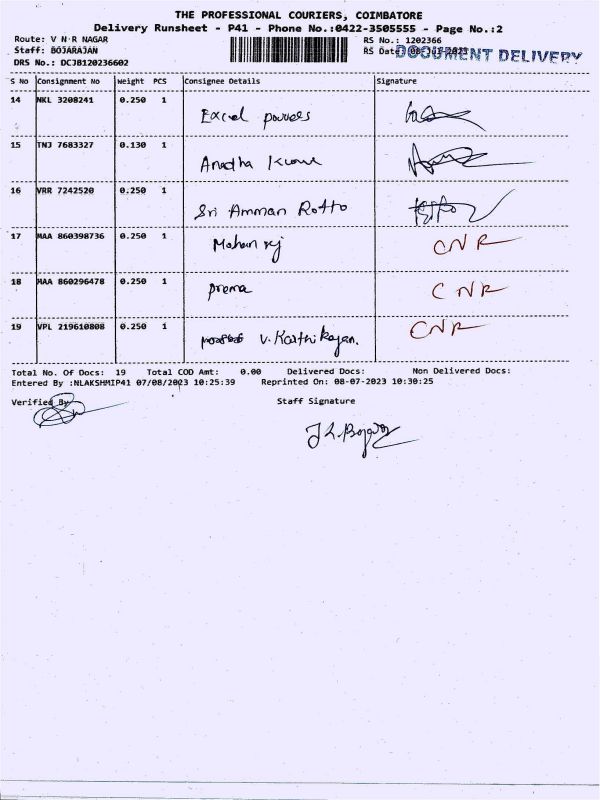 THE PROFESSIONAL COURIERS, COIMBATORE
Delivery Runsheet - P41 - Phone No.:0422-3505555 - Page No.:2
Route: V N R NAGAR
RS No.: 1202366
Staff: BOJARAJAN
RS Date: 08-Jul-2023
DOCUMENT DELIVERY
DRS No.: DCJB120236602
S No Consignment No Weight PCS Consignee Details Signature
14 NKL 3208241 0.250 1
15 TNJ 7683327 0.130 1
16 VRR 7242520 0.250 1 Sri Amman Rotto
17 MAA 860398736 0.250 1 CNR
18 MAA 860296478 0.250 1 prema CNR
19 VPL 219610808 0.250 1 V. Karthikeyan. CNR
Total No. Of Docs: 19 Total COD Amt: 0.00 Delivered Docs: Non Delivered Docs:
Entered By :NLAKSHMIP41 07/08/2023 10:25:39 Reprinted On: 08-07-2023 10:30:25
Verified By
Staff Signature